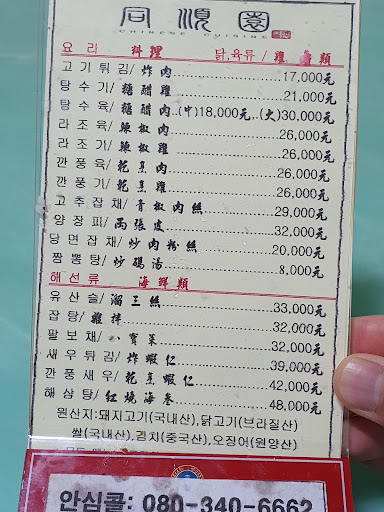 同順園
CHINESE CUISINE
요리 料理 닭,육류/雞 類
고기튀김/炸肉 17,000元
탕수기/糖醋雞 21,000元
탕수육/糖醋肉..(中)18,000元..(大)30,000元
라조육/辣椒肉 26,000元
라조기/辣椒雞 26,000元
깐풍육/乾烹肉 26,000元
깐풍기/乾烹雞 26,000元
고추잡채/青椒肉絲 29,000元
양장피/両張皮 32,000元
당면잡채/炒肉粉絲 20,000元
짬뽕탕/炒碼湯 8,000元
해선류 海鮮類
유산슬/溜三絲 33,000元
잡탕/雜拌 32,000元
팔보채/八寶菜 32,000元
새우튀김/炸蝦仁 39,000元
깐풍새우/乾烹蝦仁 42,000元
해삼탕/紅燒海參 48,000元
원산지:돼지고기(국내산),닭고기(브라질산)
쌀(국내산),김치(중국산),오징어(원양산)
안심콜: 080-340-6662